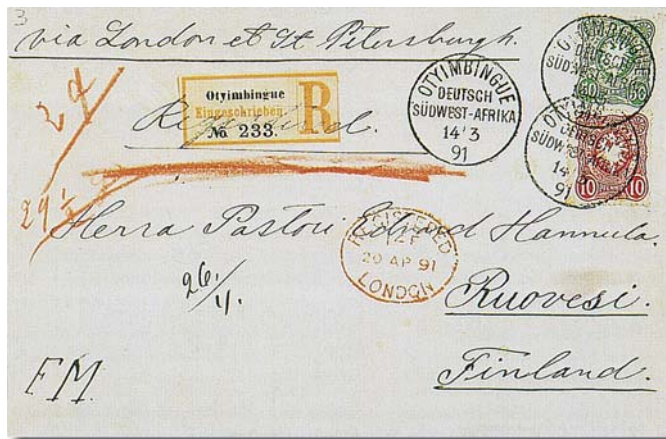 3
via London et St Petersburgh.
Otyimbingue
Eingeschrieben.
R
№ 233.
Registered.
OTYIMBINGUE
DEUTSCH
SÜDWEST-AFRIKA
14 3
91
OTYIMBINGUE
DEUTSCH
SÜDWEST-AFRIKA
50 50
OTYIMBINGUE
DEUTSCH
SÜDWEST-AFRIKA
14 3
91
10 10
27
29
Herra Pastori Edvard Hannula.
REGISTERED
20 AP 91
LONDON
26/4.
Ruovesi.
Finland.
FM.